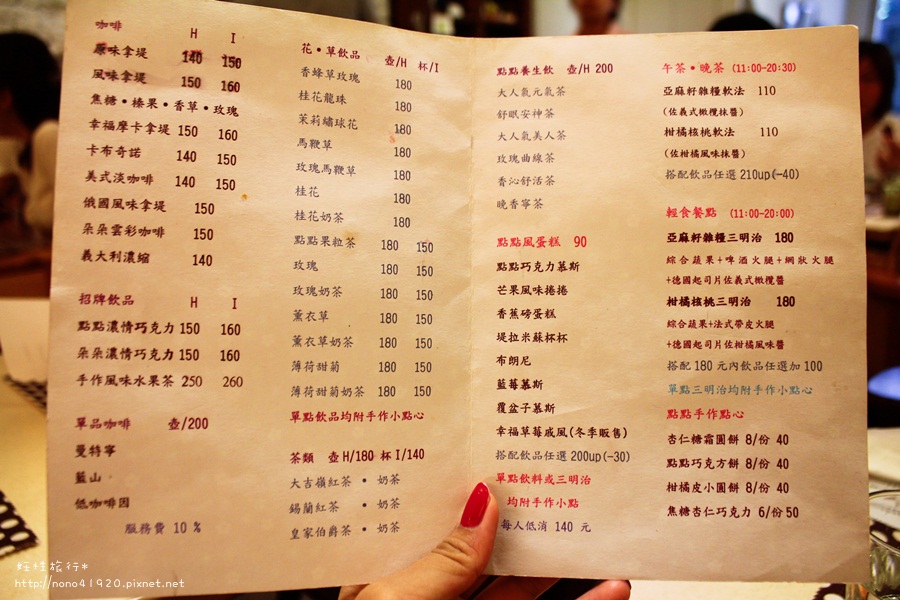 咖啡 H I
原味拿堤 140 150
風味拿堤 150 160
焦糖•榛果•香草•玫瑰
幸福摩卡拿堤 150 160
卡布奇諾 140 150
美式淡咖啡 140 150
俄國風味拿堤 150
朵朵雲彩咖啡 150
義大利濃縮 140
招牌飲品 H I
點點濃情巧克力 150 160
朵朵濃情巧克力 150 160
手作風味水果茶 250 260
單品咖啡 壺/200
曼特寧
藍山
低咖啡因
服務費 10 %
花•草飲品 壺/H 杯/I
香蜂草玫瑰 180
桂花龍珠 180
茉莉繡球花 180
馬鞭草 180
玫瑰馬鞭草 180
桂花 180
桂花奶茶 180
點點果粒茶 180 150
玫瑰 180 150
玫瑰奶茶 180 150
薰衣草 180 150
薰衣草奶茶 180 150
薄荷甜菊 180 150
薄荷甜菊奶茶 180 150
單點飲品均附手作小點心
茶類 壺H/180 杯I/140
大吉嶺紅茶 • 奶茶
錫蘭紅茶 • 奶茶
皇家伯爵茶 • 奶茶
點點養生飲 壺/H 200
大人氣元氣茶
舒眠安神茶
大人氣美人茶
玫瑰曲線茶
香沁舒活茶
晚香寧茶
點點風蛋糕 90
點點巧克力慕斯
芒果風味捲捲
香蕉磅蛋糕
堤拉米蘇杯杯
布朗尼
藍莓慕斯
覆盆子慕斯
幸福草莓戚風(冬季販售)
搭配飲品任選 200up(-30)
單點飲料或三明治
均附手作小點
每人低消 140 元
午茶•晚茶 (11:00-20:30)
亞麻籽雜糧軟法 110
(佐義式橄欖抹醬)
柑橘核桃軟法 110
(佐柑橘風味抹醬)
搭配飲品任選 210up(-40)
輕食餐點 (11:00-20:00)
亞麻籽雜糧三明治 180
綜合蔬果+啤酒火腿+網狀火腿
+德國起司片佐義式橄欖醬
柑橘核桃三明治 180
綜合蔬果+法式帶皮火腿
+德國起司片佐柑橘風味醬
搭配 180 元內飲品任選加 100
單點三明治均附手作小點心
點點手作點心
杏仁糖霜圓餅 8/份 40
點點巧克方餅 8/份 40
柑橘皮小圓餅 8/份 40
焦糖杏仁巧克力 6/份 50
輕輕旅行*
http://nono41920.pixnet.net